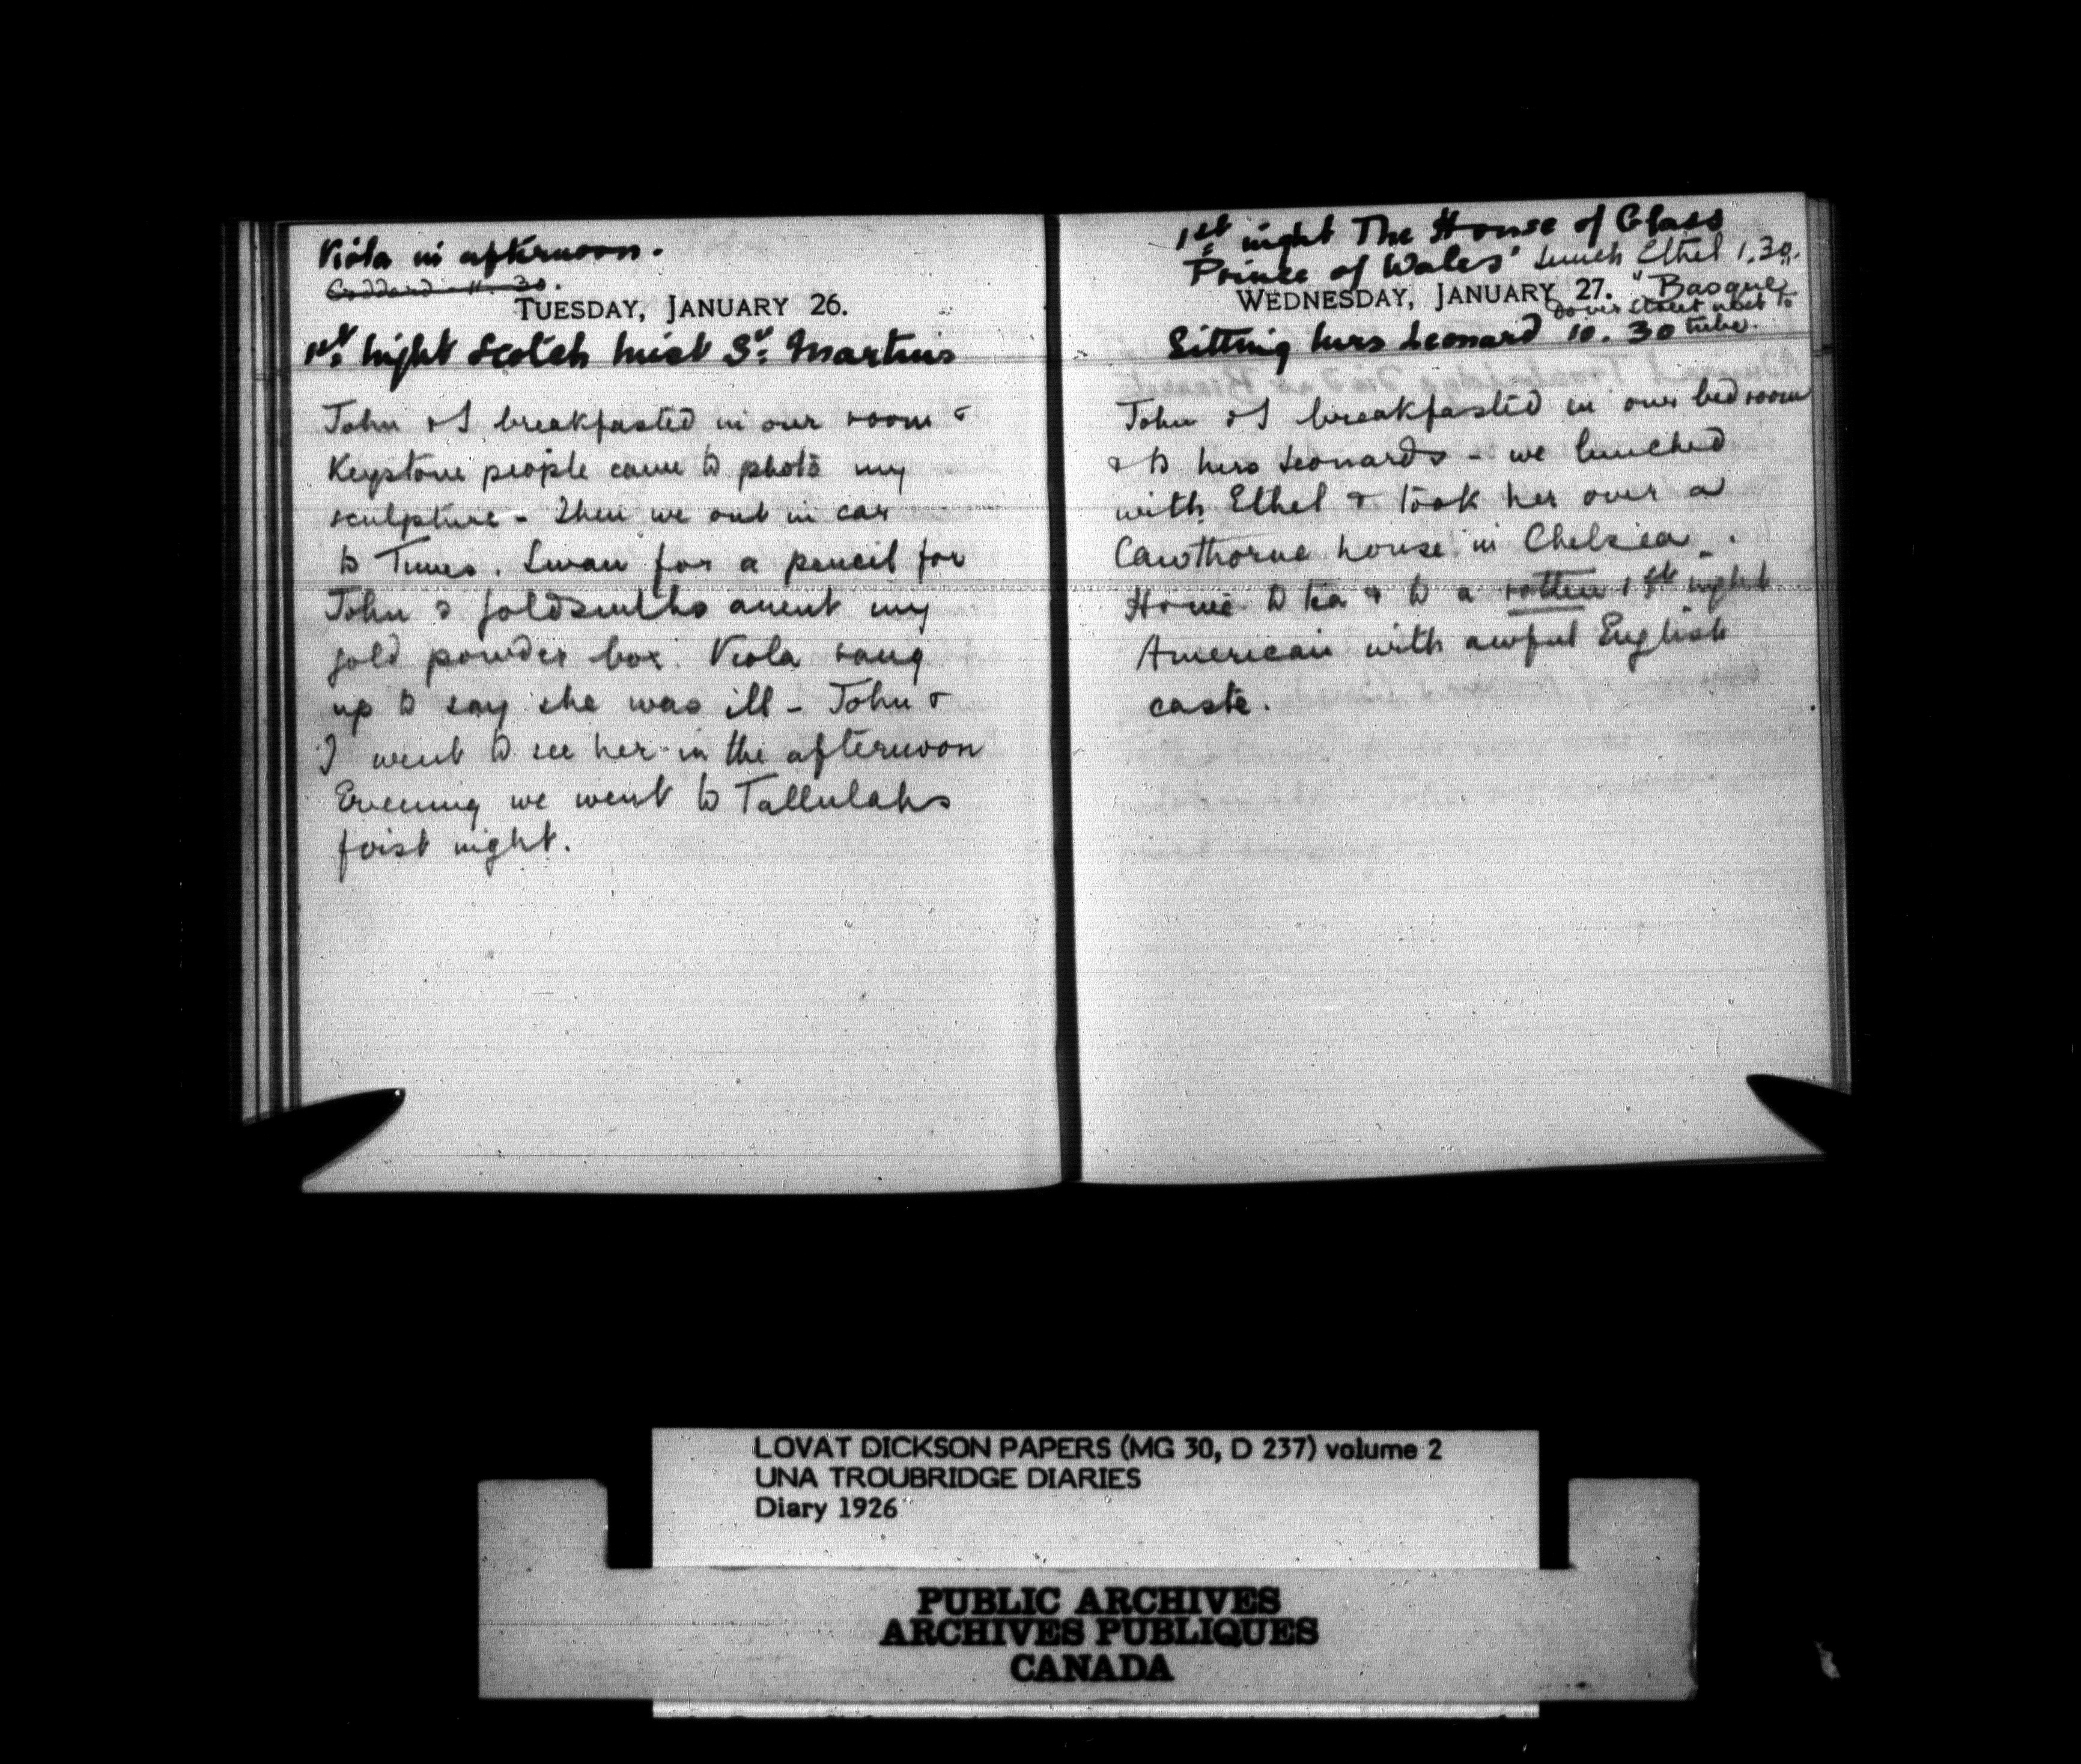 Viola in afternoon.
Goddard 11.30.
TUESDAY, JANUARY 26.
1st night Scotch Mist St. Martins
John & I breakfasted in our room &
Keystone people came to photo my
sculpture - Then we out in car
to Times. Swan for a pencil for
John & goldsmiths anent my
gold powder box. Viola rang
up to say she was ill - John &
I went to see her in the afternoon
Evening we went to Tallulahs
first night.
1st night The House of Glass
Prince of Wales' Lunch Ethel 1.30.
WEDNESDAY, JANUARY 27. "Basque"
Dover Street next to
Sitting Mrs Leonard 10.30 tube.
John & I breakfasted in our bedroom
& to Mrs Leonards - we lunched
with Ethel & took her over a
Cawthorne house in Chelsea -
Home to tea & to a rotten 1st night
American with awful English
caste.
LOVAT DICKSON PAPERS (MG 30, D 237) volume 2
UNA TROUBRIDGE DIARIES
Diary 1926
PUBLIC ARCHIVES
ARCHIVES PUBLIQUES
CANADA